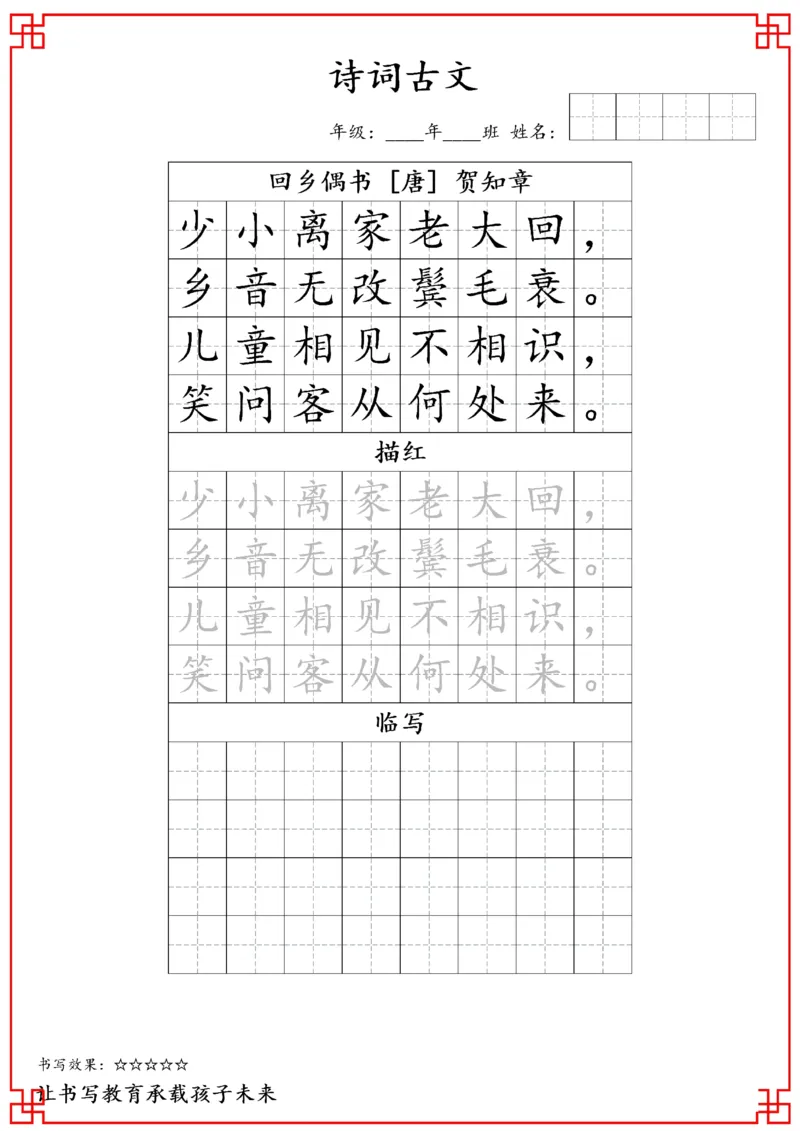 诗词古文
年级：____年____班 姓名：
回乡偶书 [唐] 贺知章
少小离家老大回，
乡音无改鬓毛衰。
儿童相见不相识，
笑问客从何处来。
描红
少小离家老大回，
乡音无改鬓毛衰。
儿童相见不相识，
笑问客从何处来。
临写
书写效果：☆☆☆☆☆
让书写教育承载孩子未来